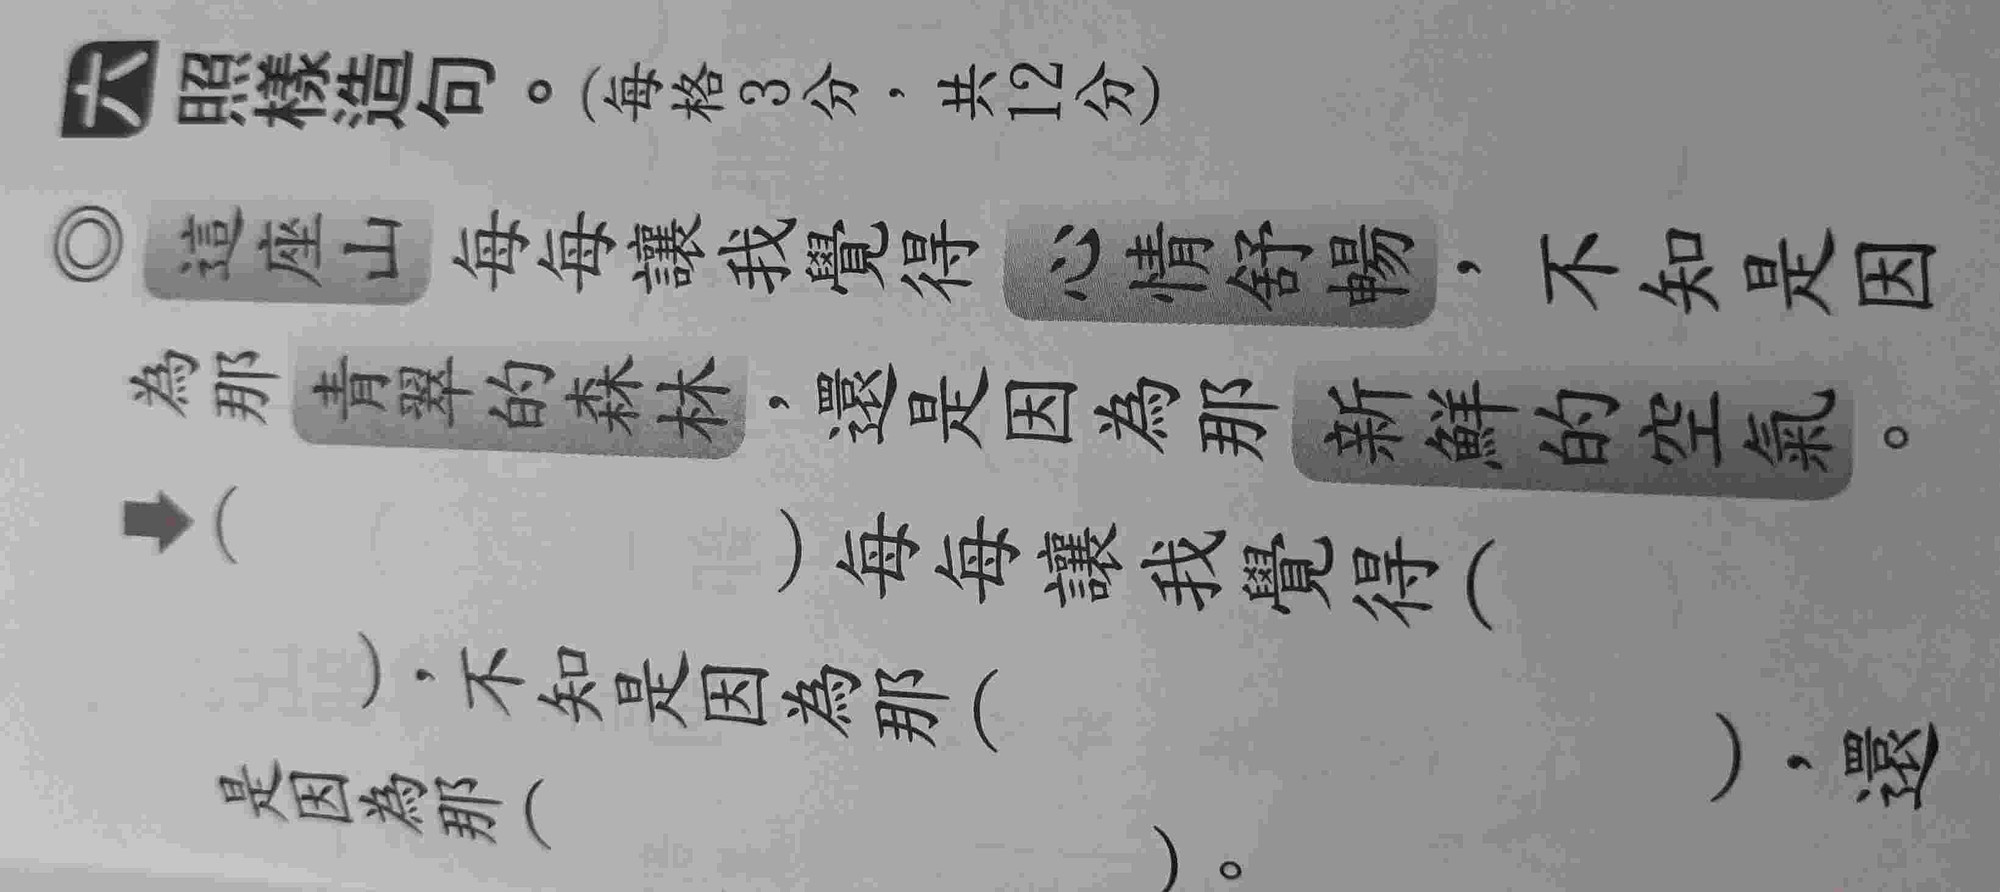 六 照樣造句。(每格3分,共12分)
◎這座山每每讓我覺得心情舒暢,不知是因
為那青翠的森林,還是因為那新鮮的空氣。
➡( )每每讓我覺得(
),不知是因為那( ),還
是因為那( )。